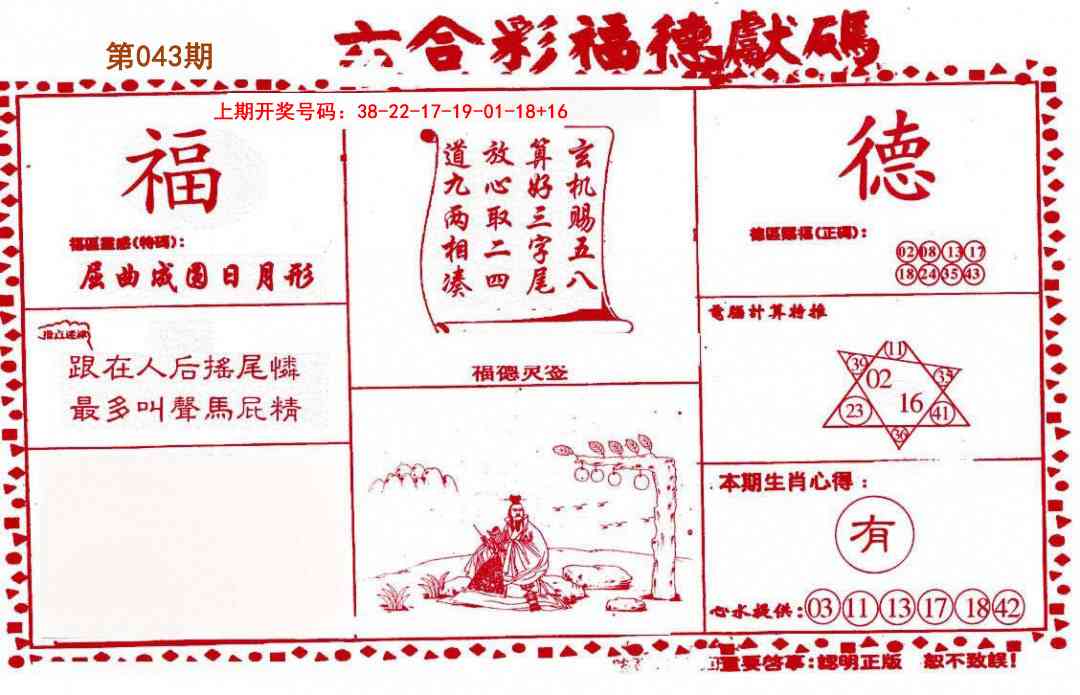 六合彩福德獻碼
第043期
上期开奖号码：38-22-17-19-01-18+16
福
福區靈感(特碼)：
屈曲成圆日月形
跟在人后搖尾憐
最多叫聲馬屁精
玄机赐五八
算好三字尾
放心取二四
道九两相凑
福德灵签
德
德區賜福(正碼)：
02 08 13 17
18 24 35 43
電腦計算特推
11
39
35
02
16
23
41
36
本期生肖心得：
有
心水提供：03 11 13 17 18 42
重要啓事：認明正版 恕不致誤！